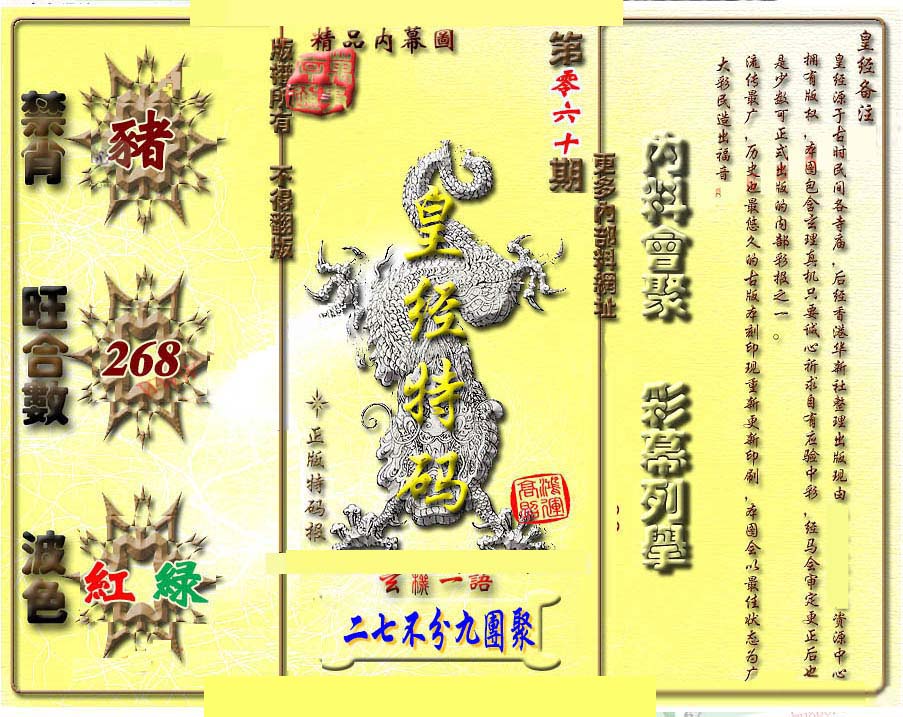 精品内幕圖
第零六十期
版權所有 不得翻版
更多內部料網址
禁肖
豬
旺合數
268
波色
紅 綠
皇经特码
正版特码报
鴻運
高照
玄機一語
二七不分九團聚
內料會聚 彩幕列舉
皇经备注
皇经源于古时民间各寺庙，后经香港华新社整理出版现由 资源中心
拥有版权，本图包含玄理真机只要诚心祈求自有应验中彩，经马会审定更正后也
是少数可正式出版的内部彩报之一。
流传最广，历史也最悠久的古版本刻印现重新更新印刷，本图会以最佳状态为广
大彩民造出福音